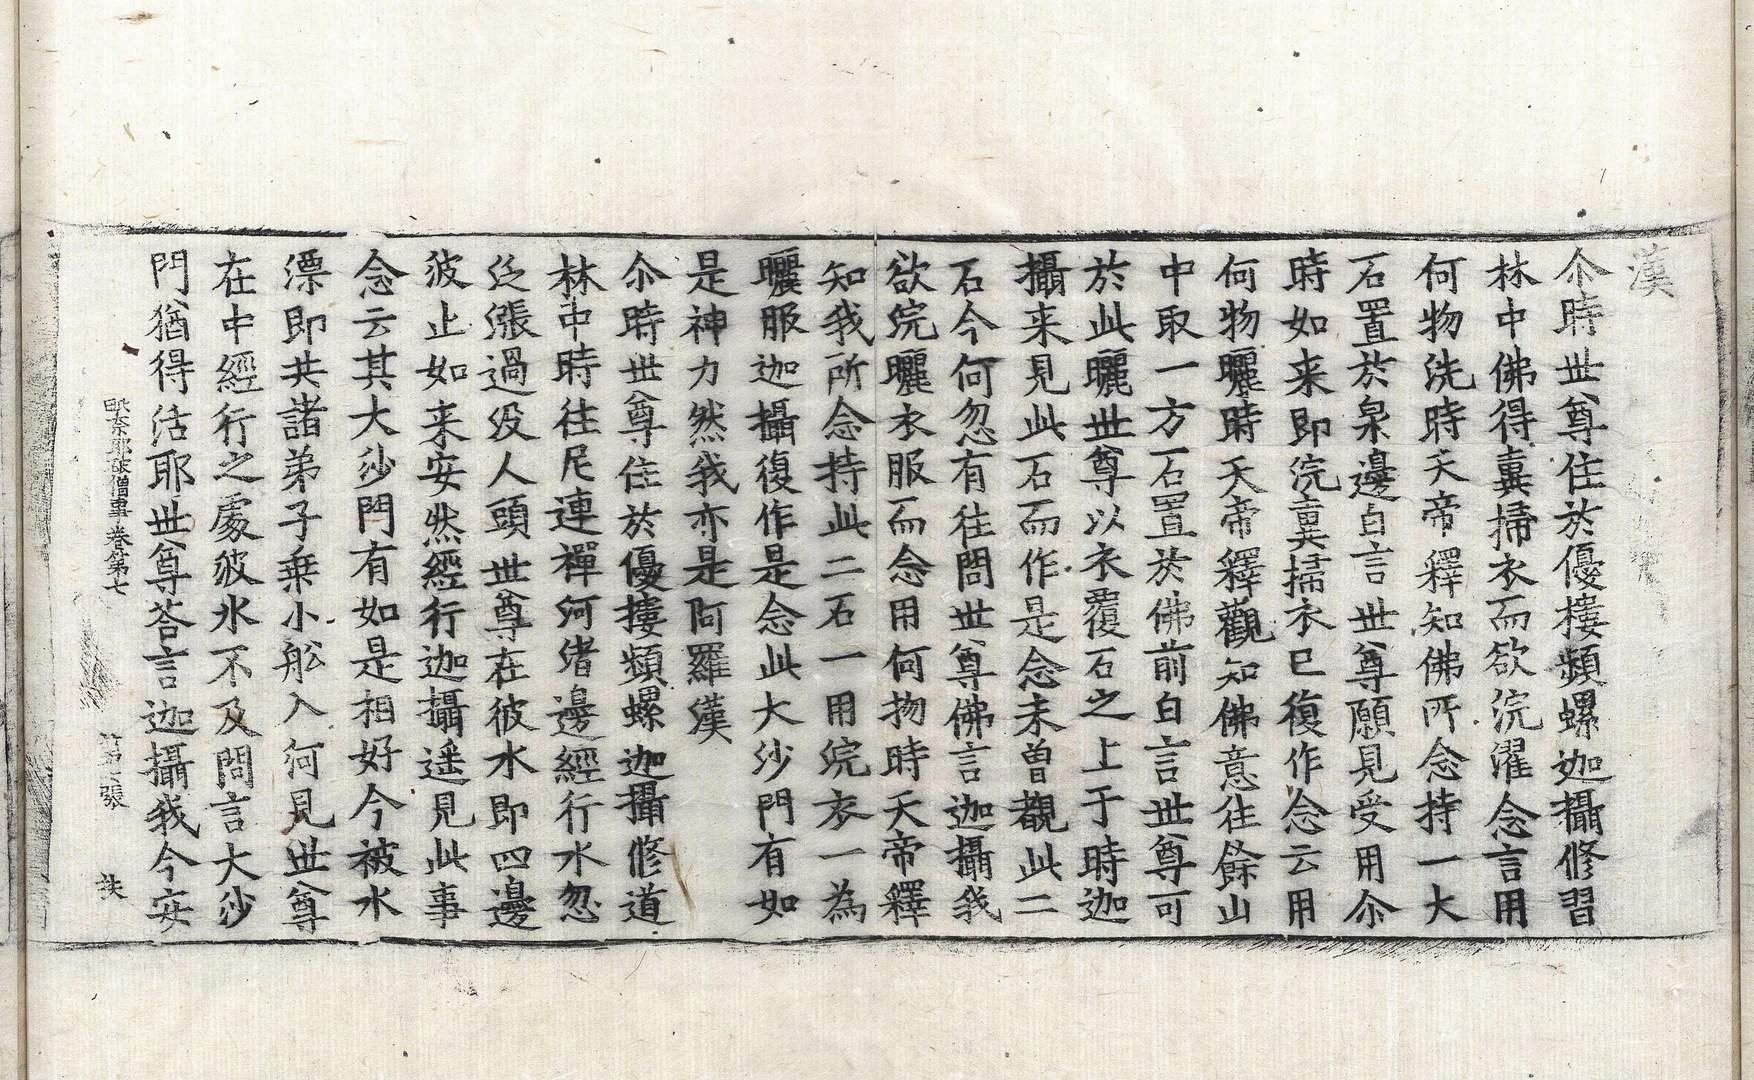 漢
尒時世尊住於優樓頻螺迦攝修習
林中佛得糞掃衣而欲浣濯念言用
何物洗時天帝釋知佛所念持一大
石置於泉邊白言世尊願見受用尒
時如来即浣糞掃衣已復作念云用
何物曬時天帝釋觀知佛意往餘山
中取一方石置於佛前白言世尊可
於此曬世尊以衣覆石之上于時迦
攝来見此石而作是念未曾觀此二
石今何忽有往問世尊佛言迦攝我
欲浣曬衣服而念用何物時天帝釋
知我所念持此二石一用浣衣一為
曬服迦攝復作是念此大沙門有如
是神力然我亦是阿羅漢
尒時世尊住於優摟頻螺迦攝修道
林中時往尼連禪河渚邊經行水忽
泛漲過没人頭世尊在彼水即四邊
波止如来安然經行迦攝遥見此事
念云其大沙門有如是相好今被水
漂即共諸弟子乗小舩入河見世尊
在中經行之處彼水不及問言大沙
門猶得活耶世尊荅言迦攝我今安
毗奈耶破僧事 卷第七 張